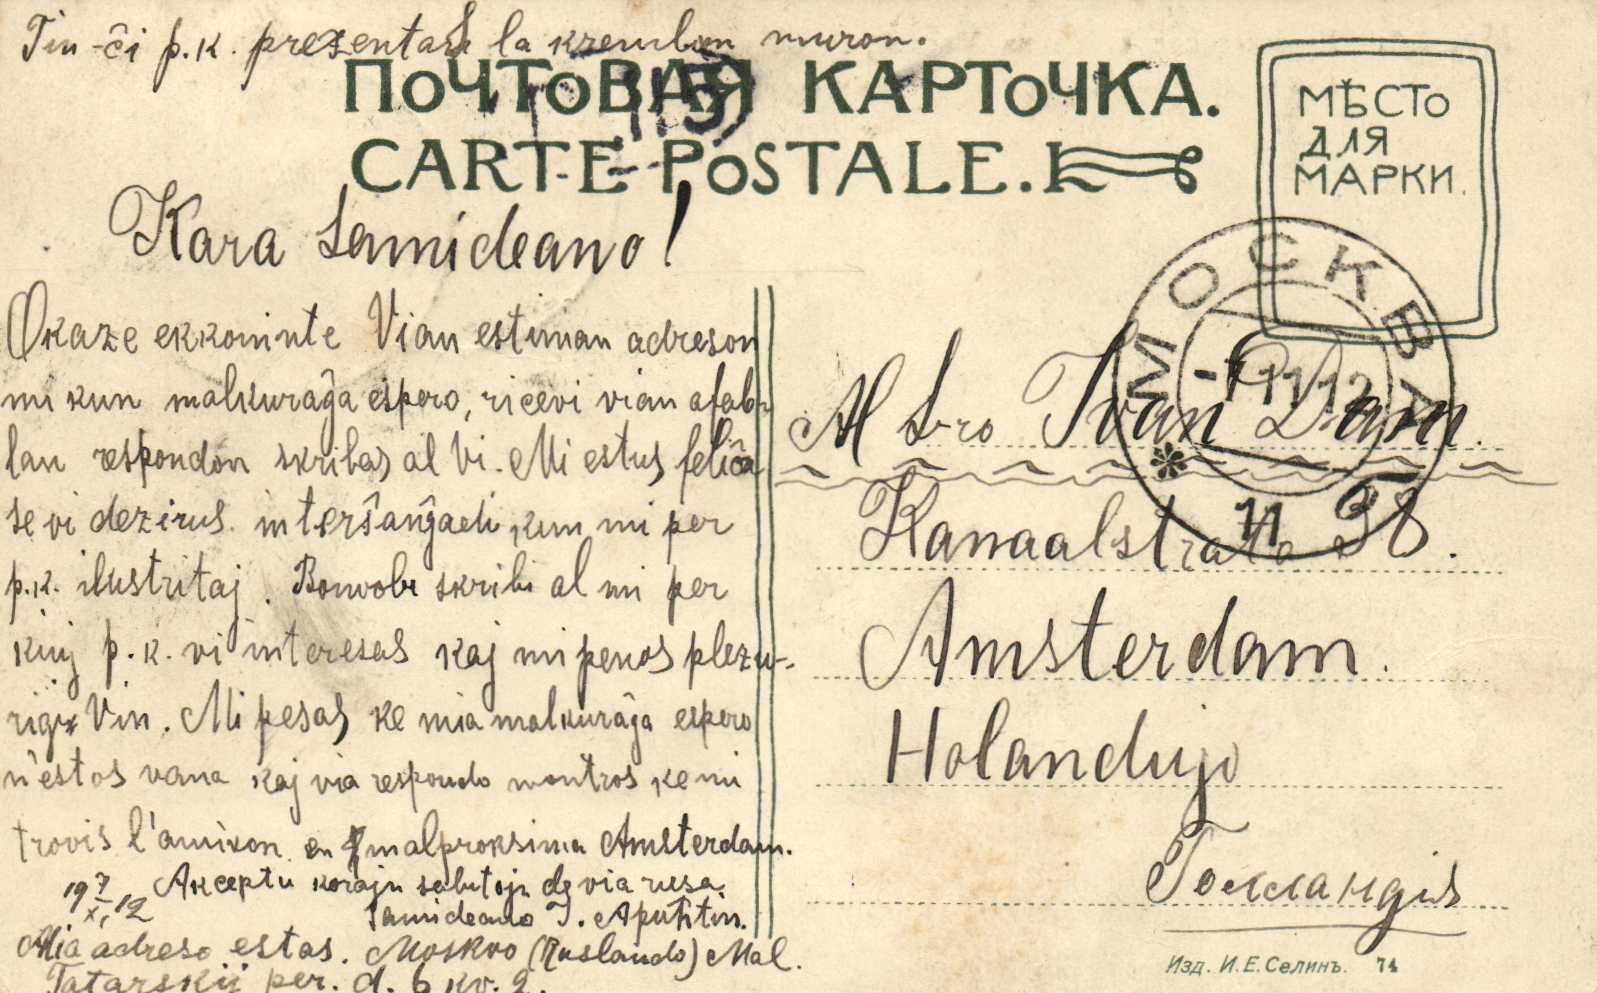 Tiu-ĉi p.k. prezentas la kremlan muron.
ПОЧТОВАЯ КАРТОЧКА.
CARTE POSTALE.
МѢСТО
ДЛЯ
МАРКИ.
Kara Samideano!
Okaze ekkoninte Vian estiman adreson
mi kun malkuraĝa espero, ricevi vian afab-
lan respondon skribas al Vi. Mi estus feliĉa
se vi dezirus interŝanĝadi kun mi per
p.k. ilustritaj. Bonvolu skribi al mi per
kiuj p.k. vi interesas kaj mi penos plezu-
rigi Vin. Mi pesas, ke mia malkuraĝa espero
n'estos vana kaj via respondo montros ke mi
trovis l'amikon en malproksima Amsterdam.
19 7/XI 12 Akceptu korajn salutojn de via rusa
samideano I. Apuĥtin.
Mia adreso estas. Moskvo (Ruslando) Mal.
Tatarskij per. d. 6 kv. 2.
МОСКВА
-7 11 12
11
Al S-ro Ivan Dam.
Kanaalstrato 58.
Amsterdam.
Holandujo
Голландія
Изд. И.Е.Селинъ. 74